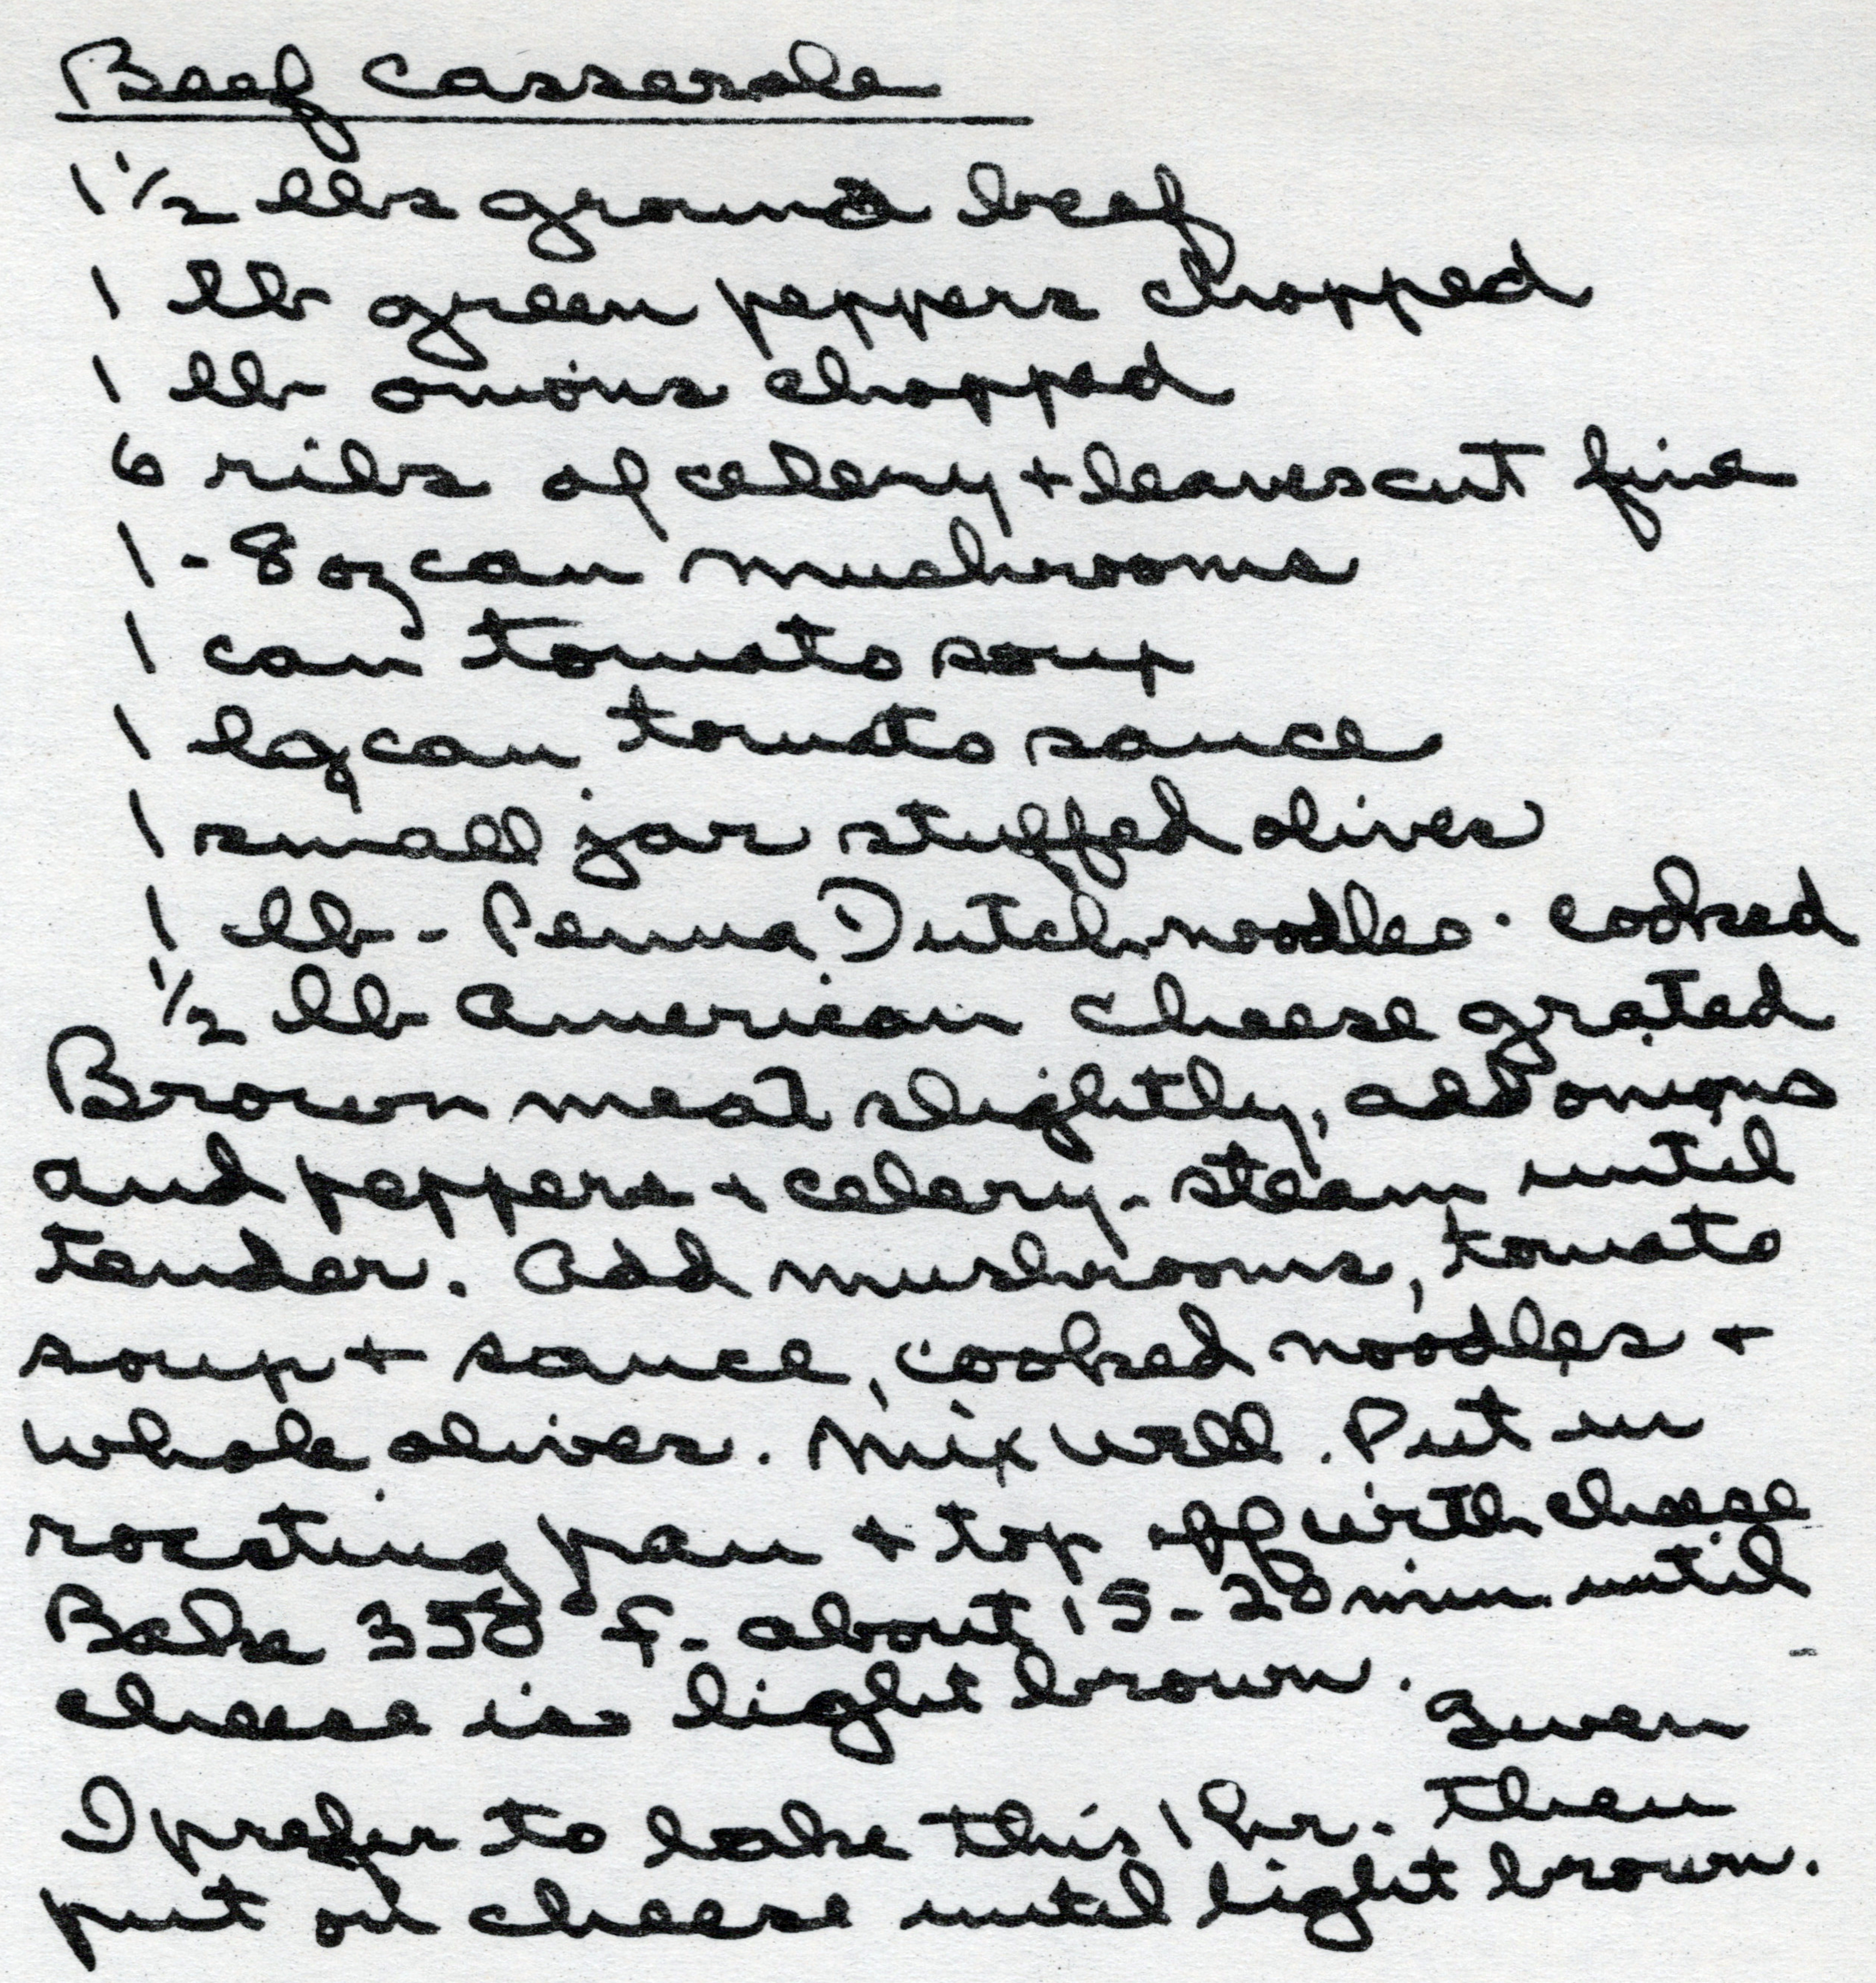 Beef Casserole
1 1/2 lbs ground beef
1 lb green peppers chopped
1 lb onions chopped
6 ribs of celery + leaves cut fine
1 - 8 oz can mushrooms
1 can tomato soup
1 lg can tomato sauce
1 small jar stuffed olives
1 lb - Penna Dutch noodles - cooked
1/2 lb American cheese grated
Brown meat slightly, add onions
and peppers + celery - steam until
tender. Add mushrooms, tomato
soup + sauce, cooked noodles +
whole olives. Mix well. Put in
roasting pan + top off with cheese
Bake 350° F. about 15-20 min until
cheese is light brown.
Gwen
I prefer to bake this 1 hr. then
put on cheese until light brown.